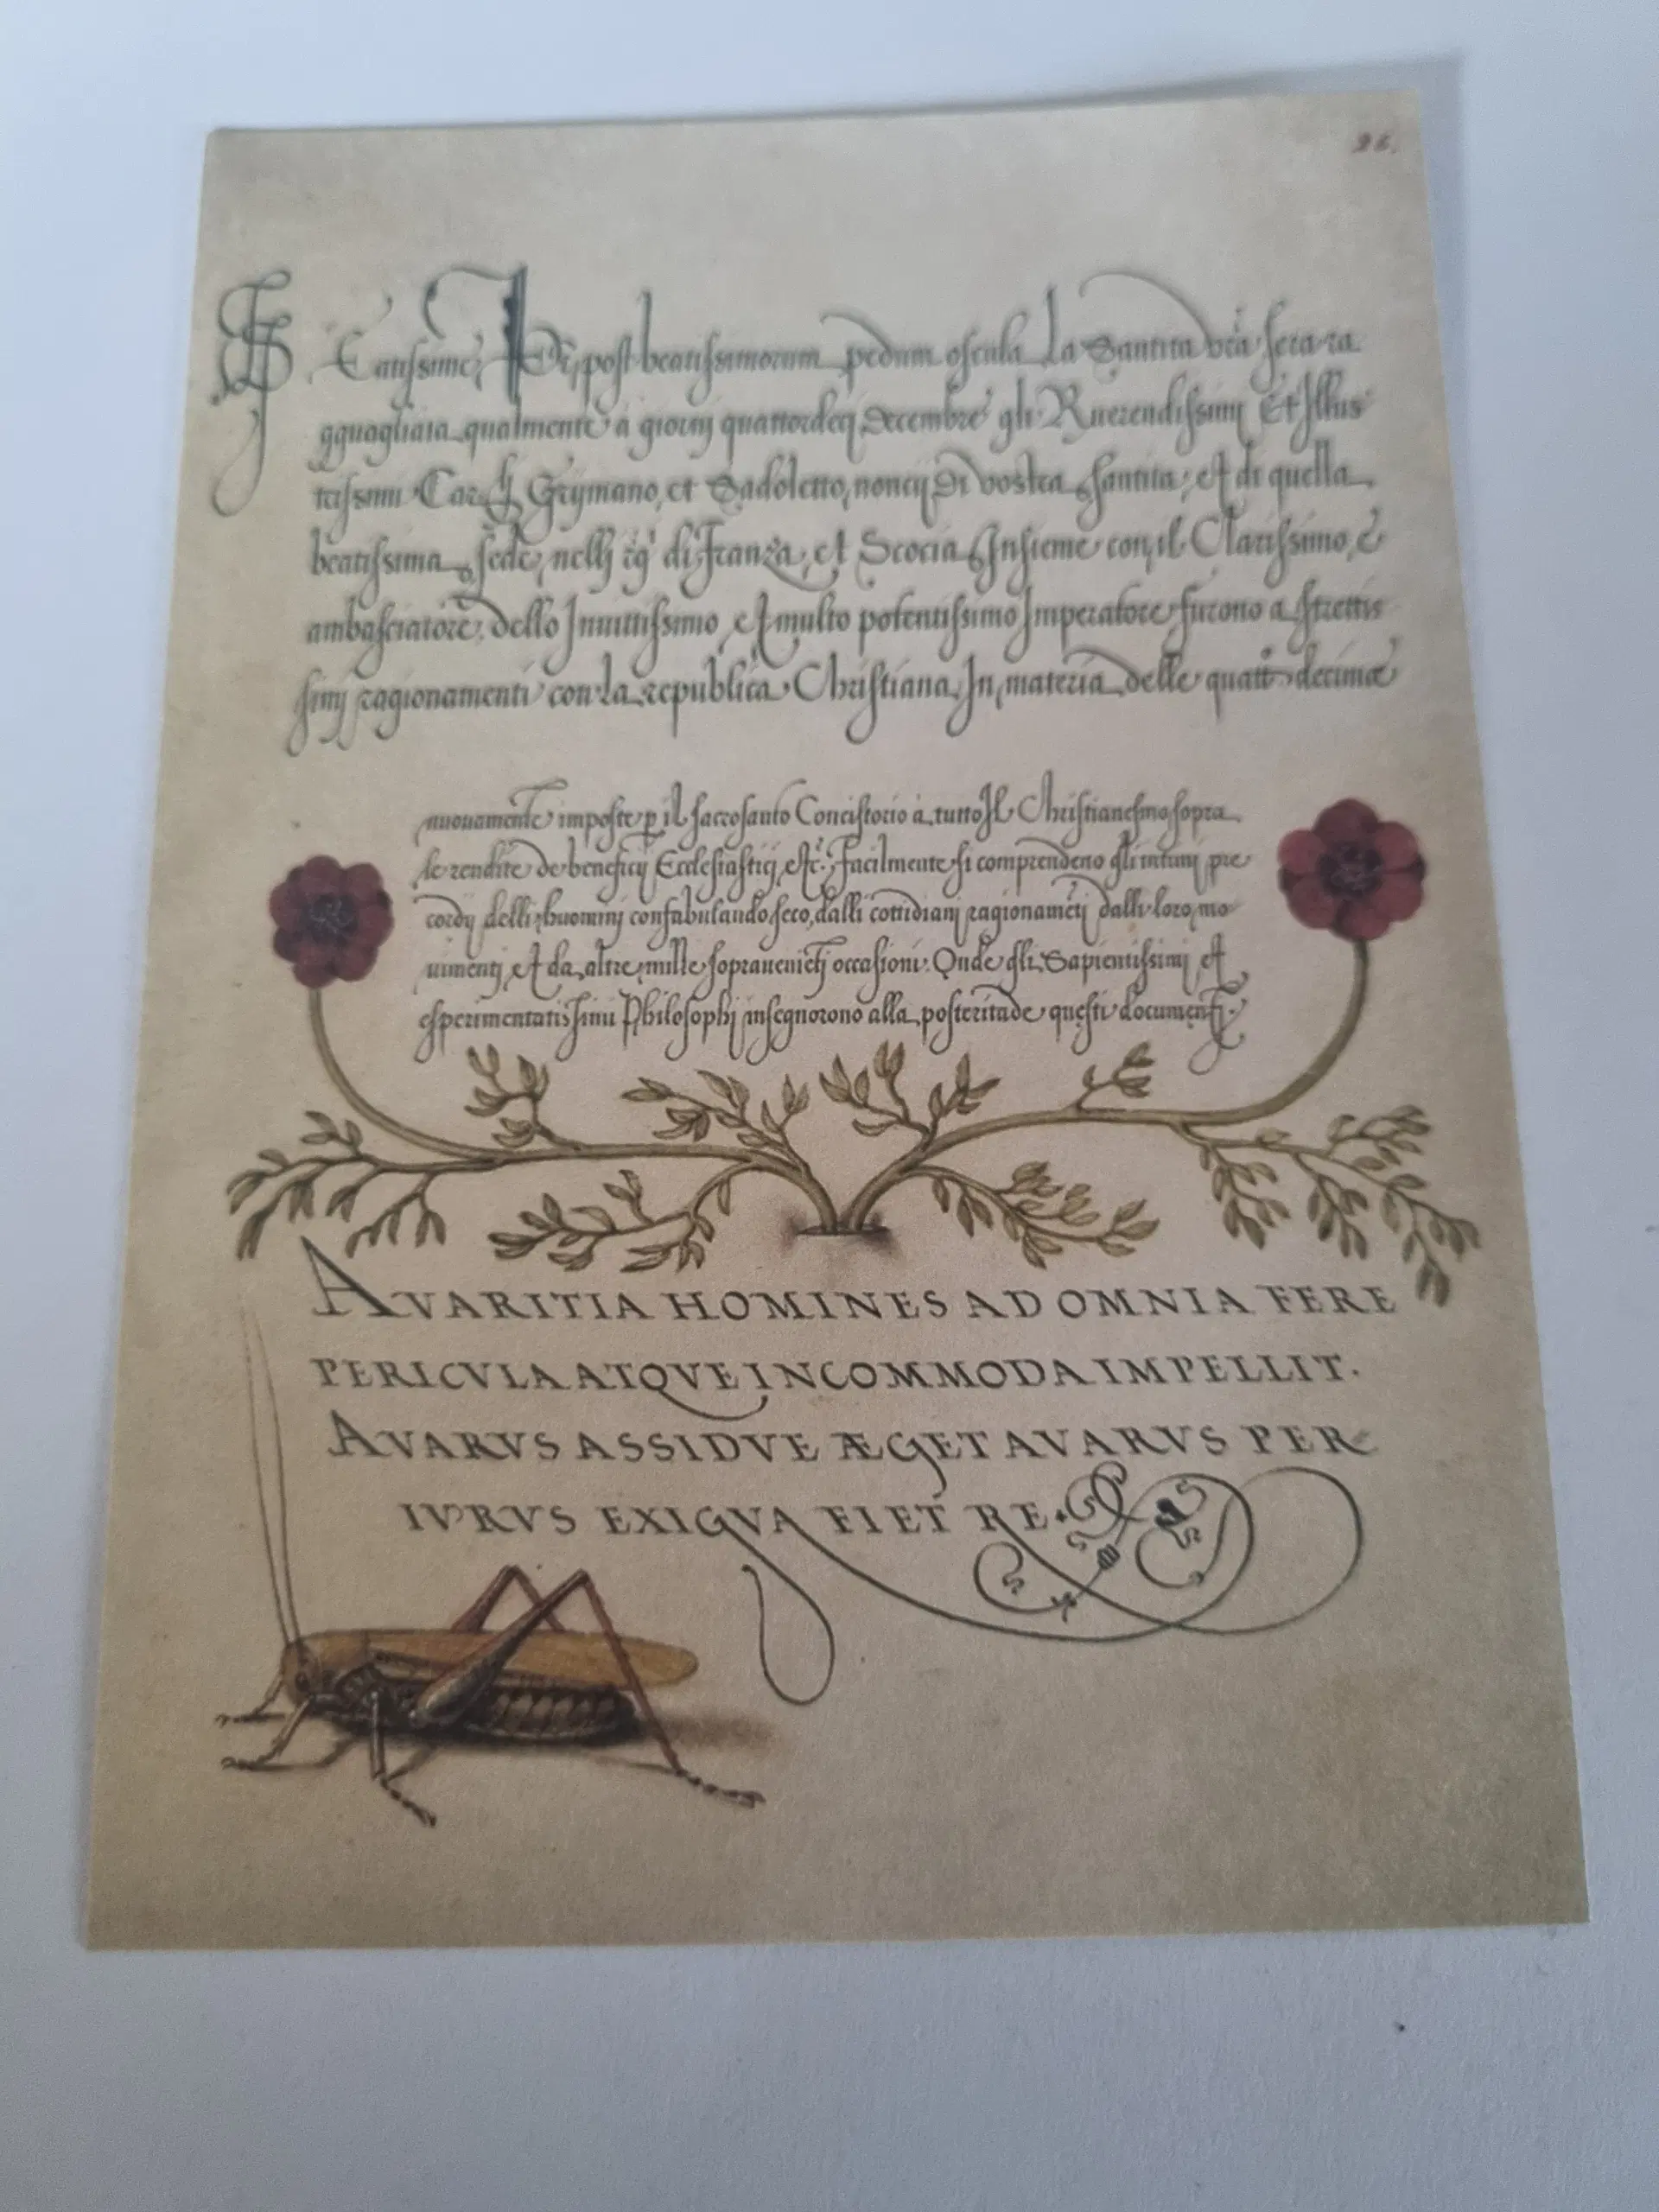 26.
BEatissime Pr̃, post beatissimorum pedum oscula La Santita vr̃a sera ra
gguagliata qualmente a giorni quattordeci Decembre gli Ruerendissimi Et Illus
trissimi Car.li Grymano, et Sadoletto, noncij Di vostra santita, et di quella
beatissima sede, nelli rg.i di Franza, et Scocia Insieme con il Clarissimo,
ambasciatore dello Inuittissimo, et multo potentissimo Imperatore furono a strettis
simi ragionamenti con la republica Christiana In materia delle quatt decime
nuouamente imposte p il sacrosanto Concistorio a tutto Il Christianesmo sopra
le rendite de beneficij Ecclesiastici, etc. Facilmente si comprendeno gli intimi pre
cordij delli huomini confabulando seco, dalli cottidiani ragionamẽti dalli loro mo
uimenti, et da altre mille soprauenieti occasioni. Onde gli Sapientissimi et
esperimentatissimi Philosophi insegnorono alla posteritade questi documenti.
AVARITIA HOMINES AD OMNIA FERE
PERICVLA ATQVE INCOMMODA IMPELLIT.
AVARVS ASSIDVE ÆGET AVARVS PER
IVRVS EXIGVA FIET RE.